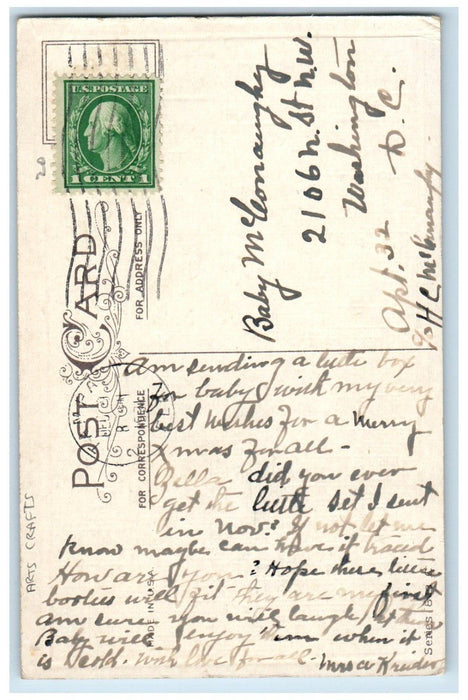 U.S. POSTAGE
1 CENT 1
20
POST CARD
FOR ADDRESS ONLY
FOR CORRESPONDENCE
MADE IN U.S.A.
ARTS CRAFTS
Baby McConaughy
2106 N. St N.W.
Washington
D.C.
Apt. 32
c/o H C McConaughy
Am sending a little box
for baby with my very
best wishes for a Merry
Xmas for all -
Zella did you ever
get the little set I sent
in Nov? If not let me
know maybe can have it traced
How are you? Hope these little
booties will fit they are my first
am sure you will laugh,
Baby will enjoy them when it
is cold. With love for all - Mrs A
Series